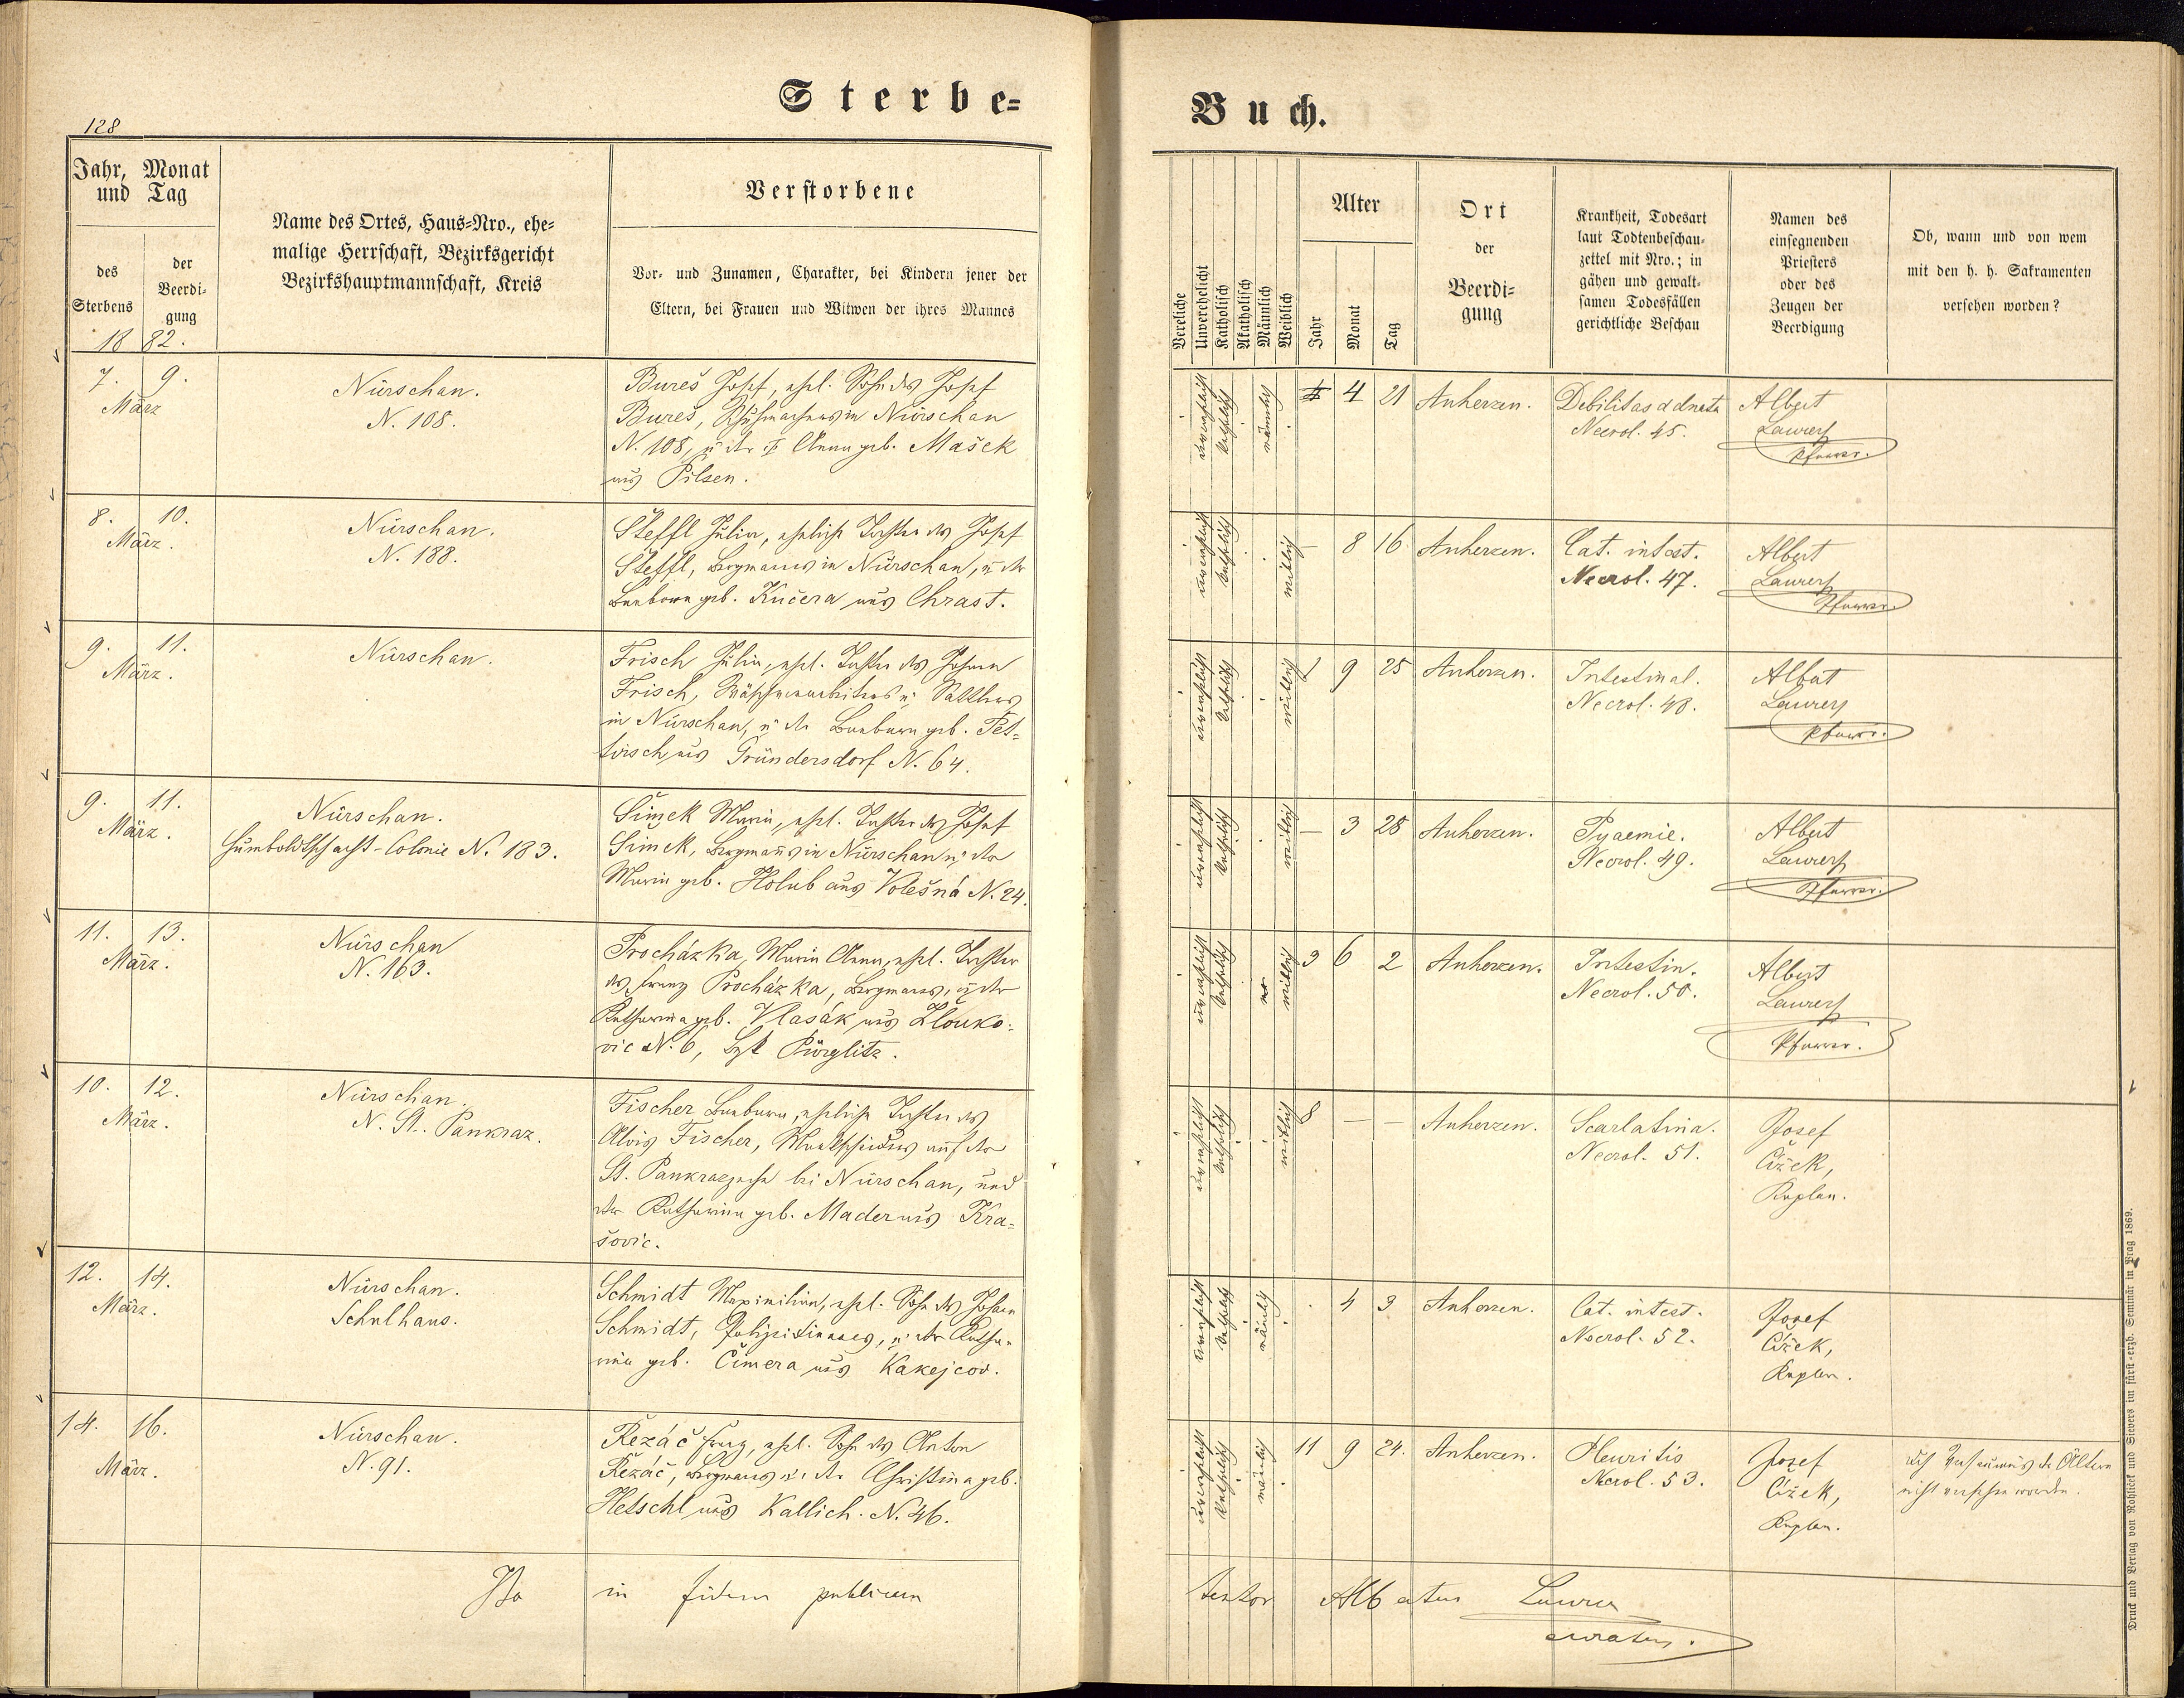 128
Sterbe-
Buch.
Jahr, Monat
und Tag
des
Sterbens
der
Beerdi-
gung
1882.
Name des Ortes, Haus-Nro., ehe-
malige Herrschaft, Bezirksgericht
Bezirkshauptmannschaft, Kreis
Verstorbene
Vor- und Zunamen, Charakter, bei Kindern jener der
Eltern, bei Frauen und Witwen der ihres Mannes
Vereliche
Unverehelicht
Katholisch
Akatholisch
Männlich
Weiblich
Alter
Jahr
Monat
Tag
Ort
der
Beerdi-
gung
Krankheit, Todesart
laut Todtenbeschau-
zettel mit Nro.; in
gähen und gewalt-
samen Todesfällen
gerichtliche Beschau
Namen des
einsegnenden
Priesters
oder des
Zeugen der
Beerdigung
Ob, wann und von wem
mit den h. h. Sakramenten
versehen worden?
7. 9.
März
Nürschan.
N. 108.
Bureš Josef, ehel. Sohn des Josef
Bureš, Schuhmachers in Nürschan
N. 108, u. der Anna geb. Mašek
aus Pilsen.
unverehelicht
katholisch
männlich
4 21
Anherzen.
Debilitas adnata
Necrol. 45.
Albert
Laurer
Pfarrer.
8. 10.
März.
Nürschan.
N. 188.
Steffl Julia, eheliche Tochter des Josef
Steffl, Bergmanns in Nürschan, u. der
Barbara geb. Kučera aus Chrast.
unverehelicht
katholisch
weiblich
— 8 16
Anherzen.
Cat. intest.
Necrol. 47.
Albert
Laurer
Pfarrer.
9. 11.
März.
Nürschan.
Frisch Julia, ehel. Tochter des Johann
Frisch, u. Sattlers
in Nürschan, u. der Barbara geb. Pet-
tirsch aus Gründersdorf N. 64.
unverehelicht
katholisch
weiblich
1 9 25
Anherzen.
Intestinal.
Necrol. 48.
Albert
Laurer
Pfarrer.
9. 11.
März.
Nürschan.
Humboldtschacht-Colonie N. 183.
Šimek Maria, ehel. Tochter des Josef
Šimek, Bergmanns in Nürschan u. der
Maria geb. Holub aus Volešná N. 24.
unverehelicht
katholisch
weiblich
— 3 28
Anherzen.
Pyaemie.
Necrol. 49.
Albert
Laurer
Pfarrer.
11. 13.
März.
Nürschan
N. 163.
Procházka, Maria Anna, ehel. Tochter
des Franz Procházka, Bergmanns, u. der
Katharina geb. Vlasák aus Zlouko-
vic N. 6, Bzk Pürglitz.
unverehelicht
katholisch
weiblich
3 6 2
Anherzen.
Intestin.
Necrol. 50.
Albert
Laurer
Pfarrer.
10. 12.
März.
Nürschan.
N. St. Pankraz.
Fischer Barbara, eheliche Tochter des
Alois Fischer, auf der
St. Pankrazzeche bei Nürschan, und
der Katharina geb. Mader aus Kra-
šovic.
unverehelicht
katholisch
weiblich
8 — —
Anherzen.
Scarlatina.
Necrol. 51.
Josef
Čížek,
Kaplan.
12. 14.
März.
Nürschan.
Schulhaus.
Schmidt Maximilian, ehel. Sohn des Johann
Schmidt, Polizeidieners, u. der Katha-
rina geb. Čimera aus Kakejcov.
unverehelicht
katholisch
männlich
4 3
Anherzen.
Cat. intest.
Necrol. 52.
Josef
Čížek,
Kaplan.
14. 16.
März.
Nürschan.
N. 91.
Řezáč Franz, ehel. Sohn des Anton
Řezáč, Bergmanns u. der Christina geb.
Hetschl aus Kallich. N. 46.
unverehelicht
katholisch
männlich
11 9 24.
Anherzen.
Pleuritis
Necrol. 53.
Josef
Čížek,
Kaplan.
Versäumnis der Ältern
nicht versehen worden.
Ita in fidem publicam testor Albertus Laurer
curatus.
Druck und Verlag von Rohliček und Sievers im fürst-erzb. Seminär in Prag 1869.